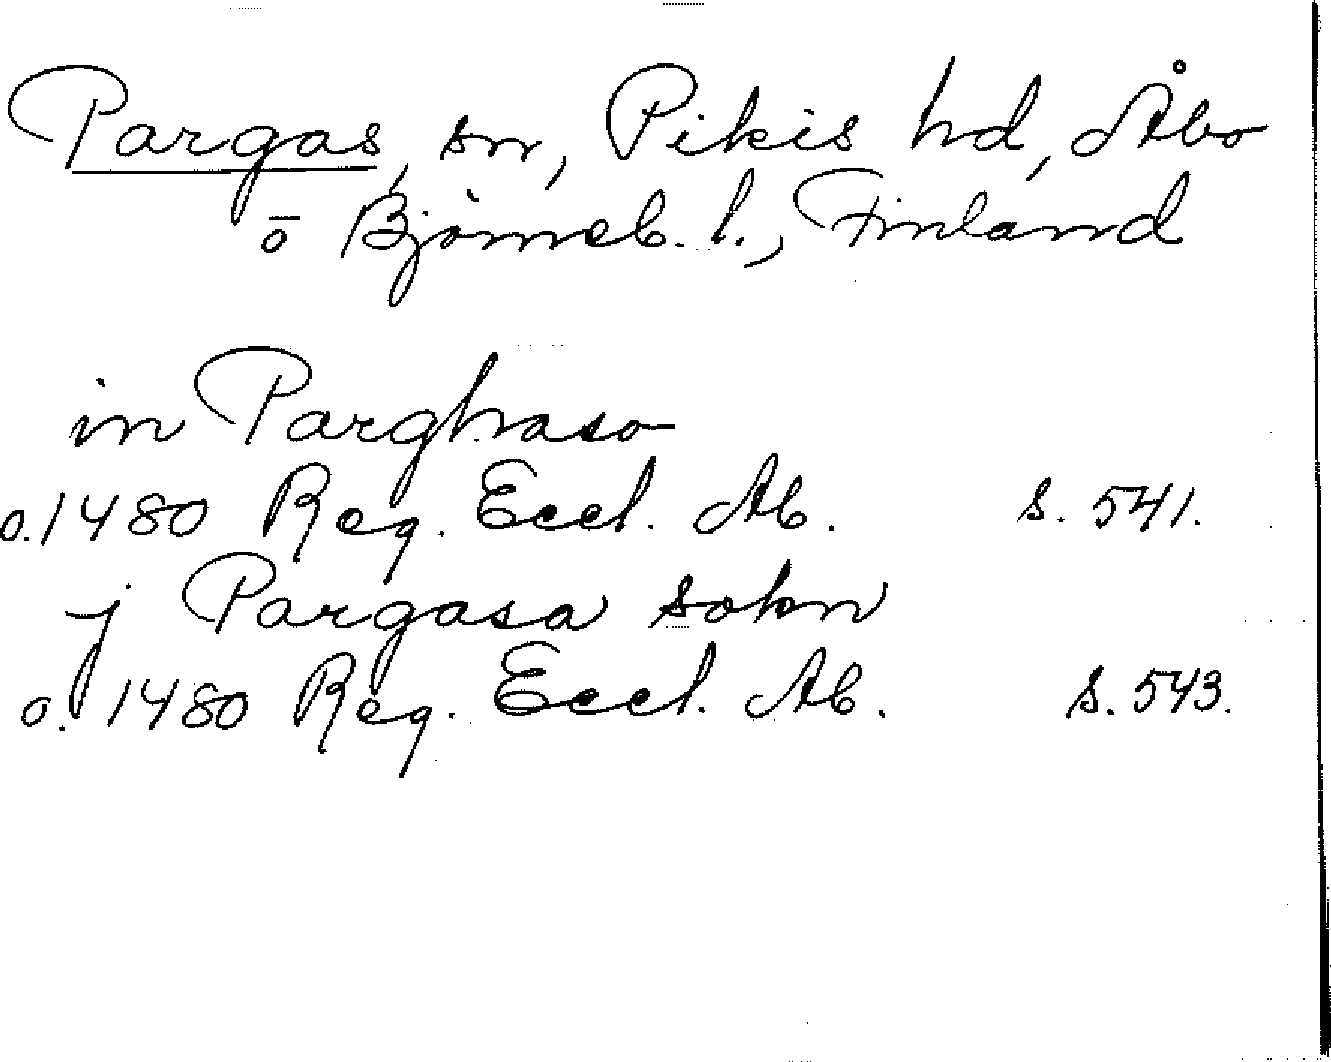 Pargas, sn, Pikis hd, Åbo
o Björneb. l., Finland
in Parghaso
o. 1480 Reg. Eccl. Ab. s. 541.
j Pargasa sokn
o. 1480 Reg. Eccl. Ab. s. 543.